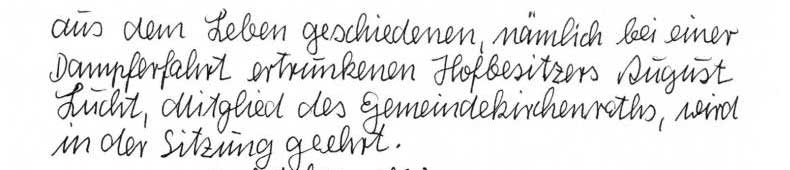 aus dem Leben geschiedenen, nämlich bei einer
Dampferfahrt ertrunkenen Hofbesitzers August
Lucht, Mitglied des Gemeindekirchenraths, wird
in der Sitzung geehrt.